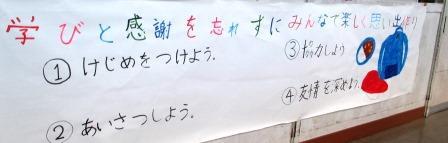 学びと感謝を忘れずにみんなで楽しく思い出作り
①けじめをつけよう.
②あいさつしよう.
③協力しよう
④友情を深めよう.